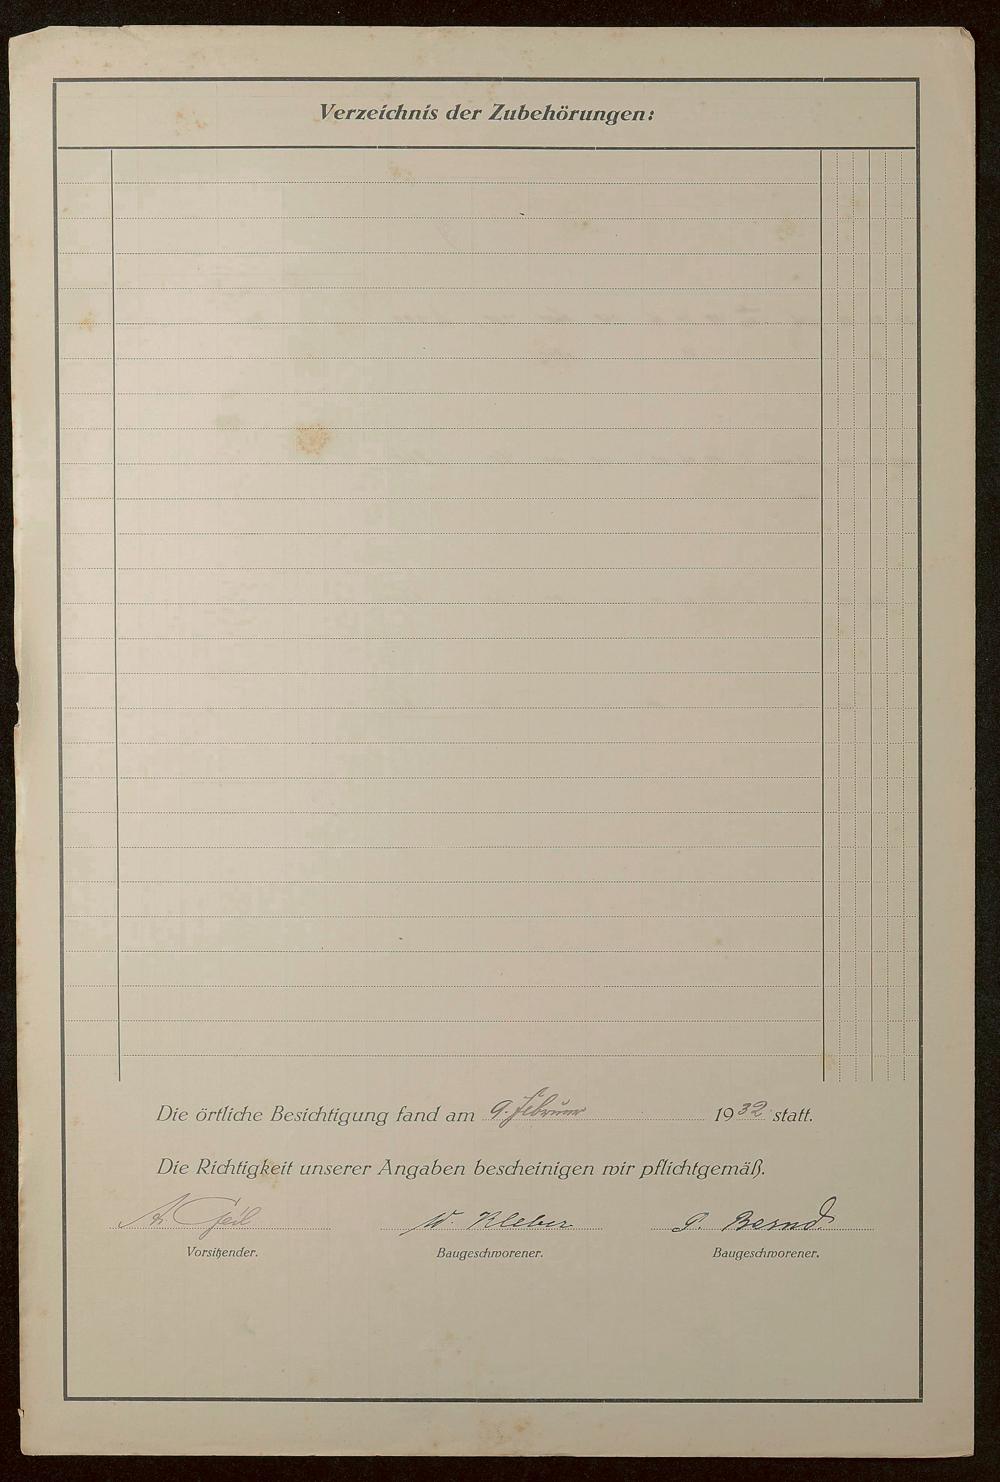 Verzeichnis der Zubehörungen:
Die örtliche Besichtigung fand am 9. Februar 1932 statt.
Die Richtigkeit unserer Angaben bescheinigen wir pflichtgemäß.
A. Geil W. Kleber P. Bernd
Vorsitzender. Baugeschworener. Baugeschworener.